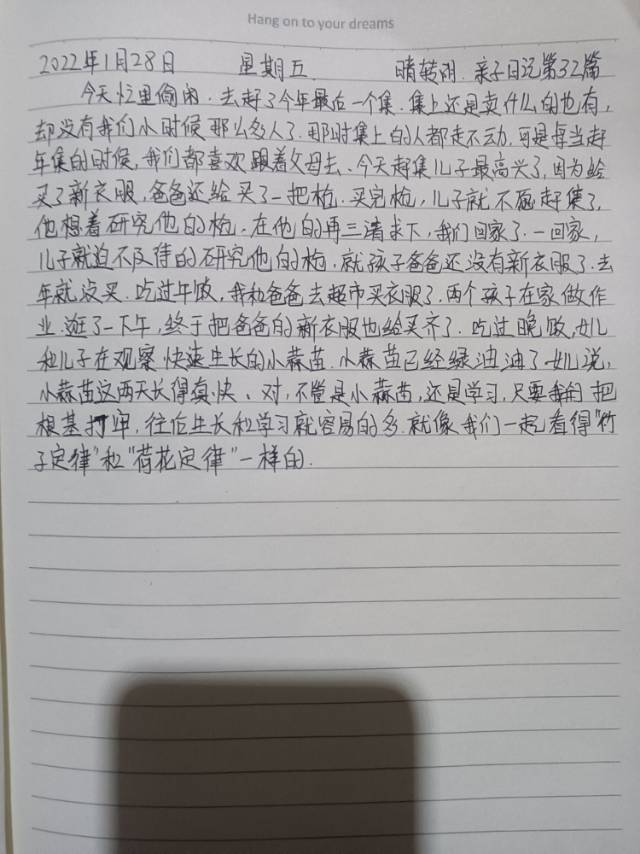 Hang on to your dreams
2022年1月28日 星期五 晴转阴. 亲子日记第32篇
今天忙里偷闲.去赶了今年最后一个集.集上还是卖什么的也有,
却没有我们小时候那么多人了.那时集上的人都走不动,可是每当赶
年集的时候,我们都喜欢跟着父母去.今天赶集儿子最高兴了,因为给
买了新衣服,爸爸还给买了一把枪.买完枪,儿子就不愿赶集了,
他想着研究他的枪.在他的再三请求下,我们回家了.一回家,
儿子就迫不及待的研究他的枪.就孩子爸爸还没有新衣服了.去
年就没买.吃过午饭,我和爸爸去超市买衣服了.两个孩子在家做作
业.逛了一下午,终于把爸爸的新衣服也给买齐了.吃过晚饭,女儿
和儿子在观察快速生长的小蒜苗.小蒜苗已经绿油油了.女儿说,
小蒜苗这两天长得真快、对,不管是小蒜苗,还是学习,只要我们把
根基打牢,往后生长和学习就容易的多.就像我们一起看得"竹
子定律"和"荷花定律"一样的.